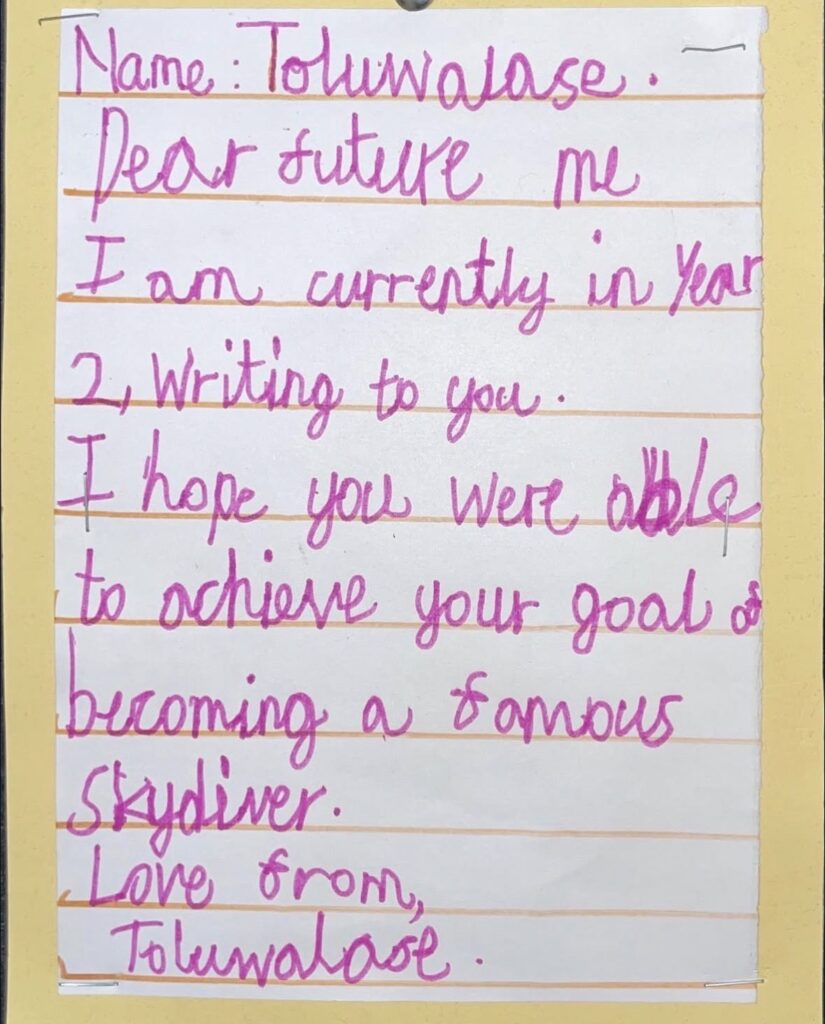 Name: Toluwalase.
Dear future me
I am currently in Year
2, Writing to you.
I hope you were able
to achieve your goal of
becoming a famous
skydiver.
Love from,
Toluwalase.